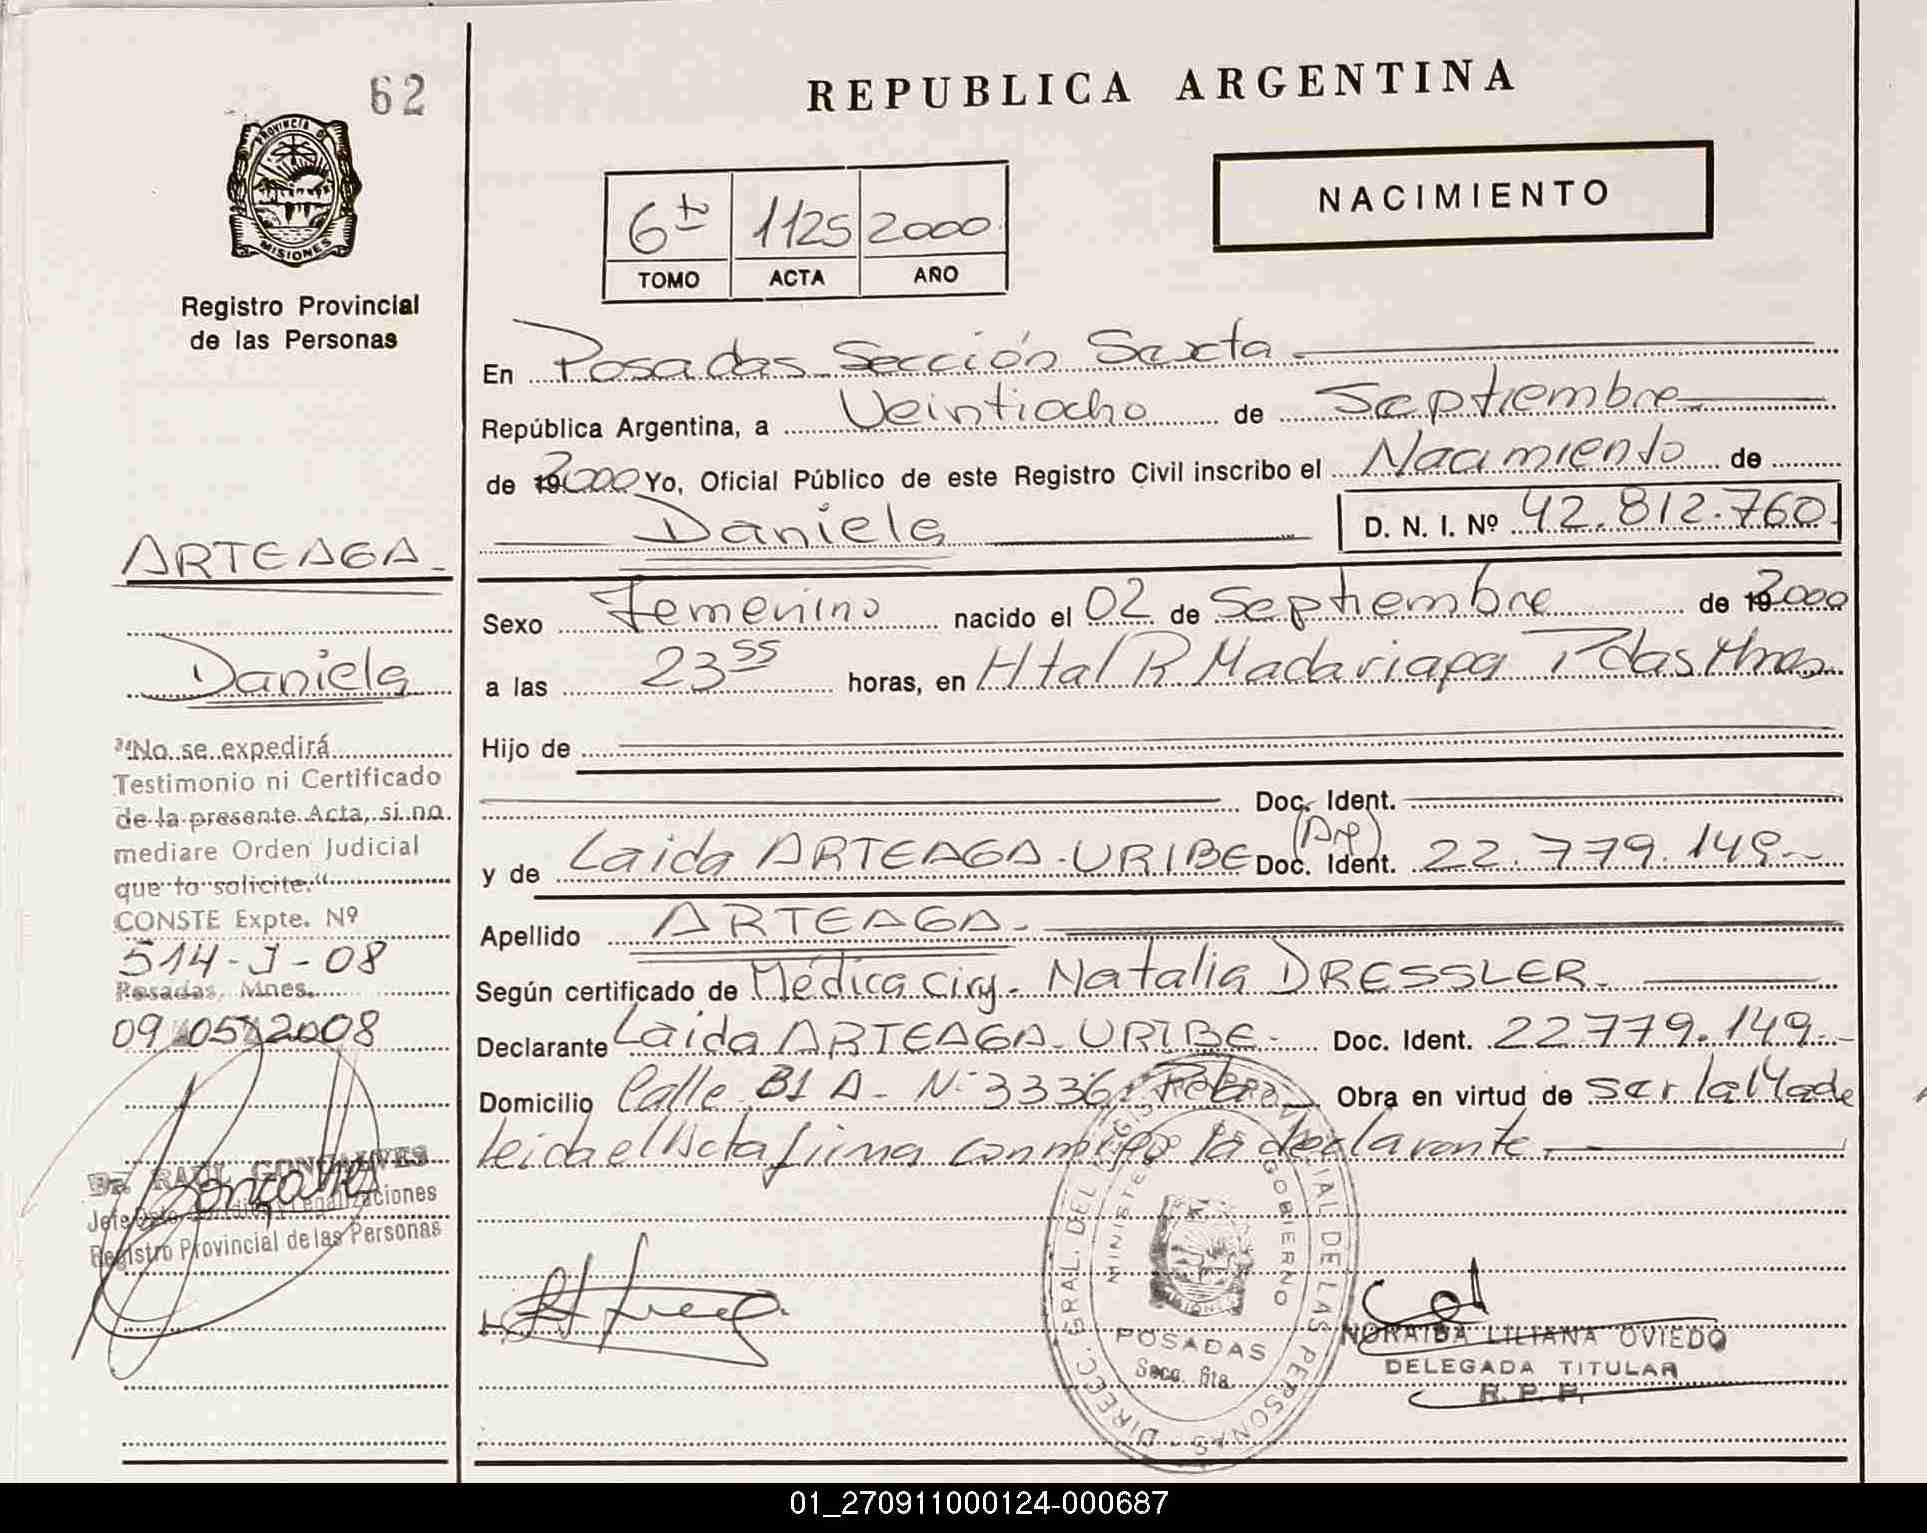 62
REPUBLICA ARGENTINA
PROVINCIA DE
MISIONES
Registro Provincial
de las Personas
NACIMIENTO
6to 1125 2000
TOMO ACTA AÑO
En Posadas Sección Sexta
República Argentina, a Veintiocho de Septiembre
de 2000 Yo, Oficial Público de este Registro Civil inscribo el Nacimiento de
Daniela D. N. I. Nº 42.812.760
Sexo Femenino nacido el 02 de Septiembre de 2000
a las 23 55 horas, en Htal R Madariaga Pdas Mnes
Hijo de
Doc. Ident.
y de Laida ARTEAGA-URIBE Doc. Ident. (Arg) 22.779.149-
Apellido ARTEAGA-
Según certificado de Médica Ciruj. Natalia DRESSLER.
Declarante Laida ARTEAGA-URIBE- Doc. Ident. 22.779.149.-
Domicilio Calle B1 A - Nº 3336 Obra en virtud de ser la Madre
leida el Acta firma conmigo la declarante.
ARTEAGA-
Daniela
"No se expedirá
Testimonio ni Certificado
de la presente Acta, si no
mediare Orden Judicial
que lo solicite."
CONSTE Expte. Nº
514-J-08
Posadas, Mnes.
09 05 2008
Dr. RAUL GONCALVES
Registro Provincial de las Personas
DIRECC. GRAL. DEL REGISTRO PROVINCIAL DE LAS PERSONAS
MINISTERIO DE GOBIERNO
MISIONES
POSADAS
Secc. 6ta.
NORAIDA LILIANA OVIEDO
DELEGADA TITULAR
R. P. P.
01_270911000124-000687